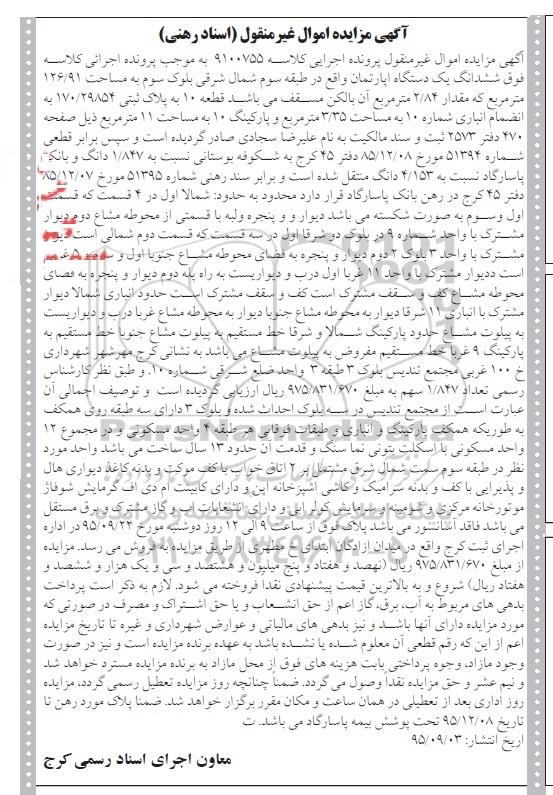 آگهی مزایده اموال غیرمنقول (اسناد رهنی)
آگهی مزایده اموال غیرمنقول پرونده اجرایی کلاسه ۹۱۰۰۷۵۵ به موجب پرونده اجرائی کلاسه
فوق ششدانگ یک دستگاه اپارتمان واقع در طبقه سوم شمال شرقی بلوک سوم به مساحت ۱۲۶/۹۱
مترمربع که مقدار ۲/۸۴ مترمربع آن بالکن مسقف می باشد قطعه ۱۰ به پلاک ثبتی ۱۷۰/۲۹۸۵۴ به
انضمام انباری شماره ۱۰ به مساحت ۳/۳۵ مترمربع و پارکینگ ۱۰ به مساحت ۱۱ مترمربع ذیل صفحه
۴۷۰ دفتر ۲۵۷۳ ثبت و سند مالکیت به نام علیرضا سجادی صادر گردیده است و سپس برابر قطعی
شماره ۵۱۳۹۴ مورخ ۸۵/۱۲/۰۸ دفتر ۴۵ کرج به شکوفه بوستانی نسبت به ۱/۸۴۷ دانگ و بانک
پاسارگاد نسبت به ۴/۱۵۳ دانگ منتقل شده است و برابر سند رهنی شماره ۵۱۳۹۵ مورخ ۸۵/۱۲/۰۷
دفتر ۴۵ کرج در رهن بانک پاسارگاد قرار دارد محدود به حدود: شمالا اول در ۴ قسمت که قسمت
اول و سوم به صورت شکسته می باشد دیوار و و پنجره ولبه با قسمتی از محوطه مشاع دوم دیوار
مشترک با واحد شماره ۹ در بلوک دو شرقا اول در سه قسمت که قسمت دوم شمالی است
مشترک با واحد ۳ بلوک ۲ دوم دیوار و پنجره به فضای محوطه مشاع جنوبا اول و سوم
است ددیوار مشترک با واحد ۱۱ غربا اول درب و دیواریست به راه پله دوم دیوار و پنجره به فصای
محوطه مشاع کف و سقف مشترک است کف و سقف مشترک است حدود انباری شمالا دیوار
مشترک با انباری ۱۱ شرقا دیوار به محوطه مشاع جنوبا دیوار به محوطه مشاع غربا درب و دیواریست
به پیلوت مشاع حدود پارکینگ شمالا و شرقا خط مستقیم به پیلوت مشاع جنوبا خط مستقیم به
پارکینگ ۹ غربا خط مستقیم مفروض به پیلوت مشاع می باشد به نشانی کرج مهرشهر شهرداری
خ ۱۰۰ غربی مجتمع تندیس بلوک ۳ طبقه ۳ واحد ضلع شرقی شماره ۱۰. و طبق نظر کارشناس
رسمی تعداد ۱/۸۴۷ سهم به مبلغ ۹۷۵/۸۳۱/۶۷۰ ریال ارزیابی گردیده است و توصیف اجمالی آن
عبارت است از مجتمع تندیس در سه بلوک احداث شده و بلوک ۳ دارای سه طبقه روی همکف
به طوریکه همکف پارکینگ و انباری و طبقات فوقانی هر طبقه ۴ واحد مسکونی و در مجموع ۱۲
واحد مسکونی با اسکلت بتونی نما سنگ و قدمت آن حدود ۱۳ سال ساخت می باشد واحد مورد
نظر در طبقه سوم سمت شمال شرق مشتمل بر ۲ اتاق خواب با کف موکت و بدنه کاغذ دیواری هال
و پذیرایی با کف و بدنه سرامیک و کاشی اشپزخانه اپن و دارای کابینت ام دی اف گرمایش شوفاژ
موتورخانه مرکزی و شومینه و سرمایش کولر ابی و دارای انشعابات اب و گاز مشترک و برق مستقل
می باشد فاقد آسانسور می باشد پلاک فوق از ساعت ۹ الی ۱۲ روز دوشنبه مورخ ۹۵/۰۹/۲۲ در اداره
اجرای ثبت کرج واقع در میدان ازادگان ابتدای خ مطهری از طریق مزایده به فروش می رسد. مزایده
از مبلغ ۹۷۵/۸۳۱/۶۷۰ ریال (نهصد و هفتاد و پنج میلیون و هشتصد و سی و یک هزار و ششصد و
هفتاد ریال) شروع و به بالاترین قیمت پیشنهادی نقدا فروخته می شود. لازم به ذکر است پرداخت
بدهی های مربوط به آب، برق، گاز اعم از حق انشعاب و یا حق اشتراک و مصرف در صورتی که
مورد مزایده دارای آنها باشد و نیز بدهی های مالیاتی و عوارض شهرداری و غیره تا تاریخ مزایده
اعم از این که رقم قطعی آن معلوم شده یا نشده باشد به عهده برنده مزایده است و نیز در صورت
وجود مازاد، وجوه پرداختی بابت هزینه های فوق از محل مازاد به برنده مزایده مسترد خواهد شد
و نیم عشر و حق مزایده نقداً وصول می گردد. ضمناً چنانچه روز مزایده تعطیل رسمی گردد، مزایده
روز اداری بعد از تعطیلی در همان ساعت و مکان مقرر برگزار خواهد شد. ضمنا پلاک مورد رهن تا
تاریخ ۹۵/۱۲/۰۸ تحت پوشش بیمه پاسارگاد می باشد. ت
اریخ انتشار: ۹۵/۰۹/۰۳
معاون اجرای اسناد رسمی کرج
ParsNamadData